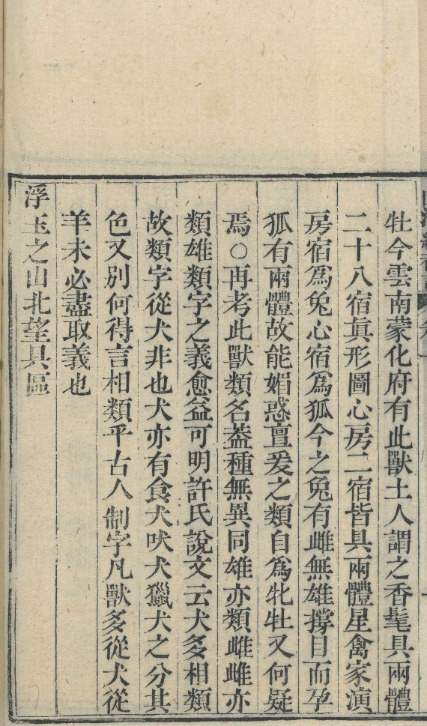 牡今雲南蒙化府有此獸土人謂之香髦具兩體
二十八宿真形圖心房二宿皆具兩體星禽家演
房宿為兔心宿為狐今之兔有雌無雄撐目而孕
狐有兩體故能媚惑亶爰之類自為牝牡又何疑
焉○再考此獸類名葢種無異同雄亦類雌雌亦
類雄類字之義愈益可明許氏說文云犬多相類
故類字從犬非也犬亦有食犬吠犬獵犬之分其
色又別何得言相類乎古人制字凡獸多從犬從
羊未必盡取義也
浮玉之山北望具區